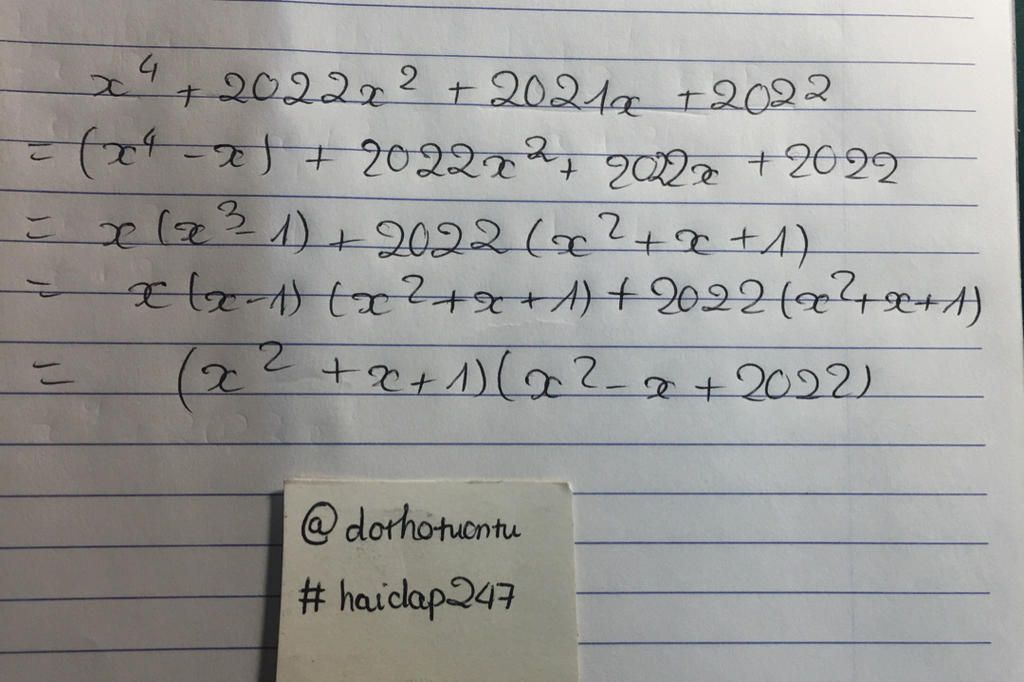 x⁴ + 2022x² + 2021x + 2022
= (x⁴ - x) + 2022x² + 2022x + 2022
= x(x³ - 1) + 2022(x² + x + 1)
= x(x-1)(x² + x + 1) + 2022(x² + x + 1)
= (x² + x + 1)(x² - x + 2022)
@dothotuontu
#haidap247